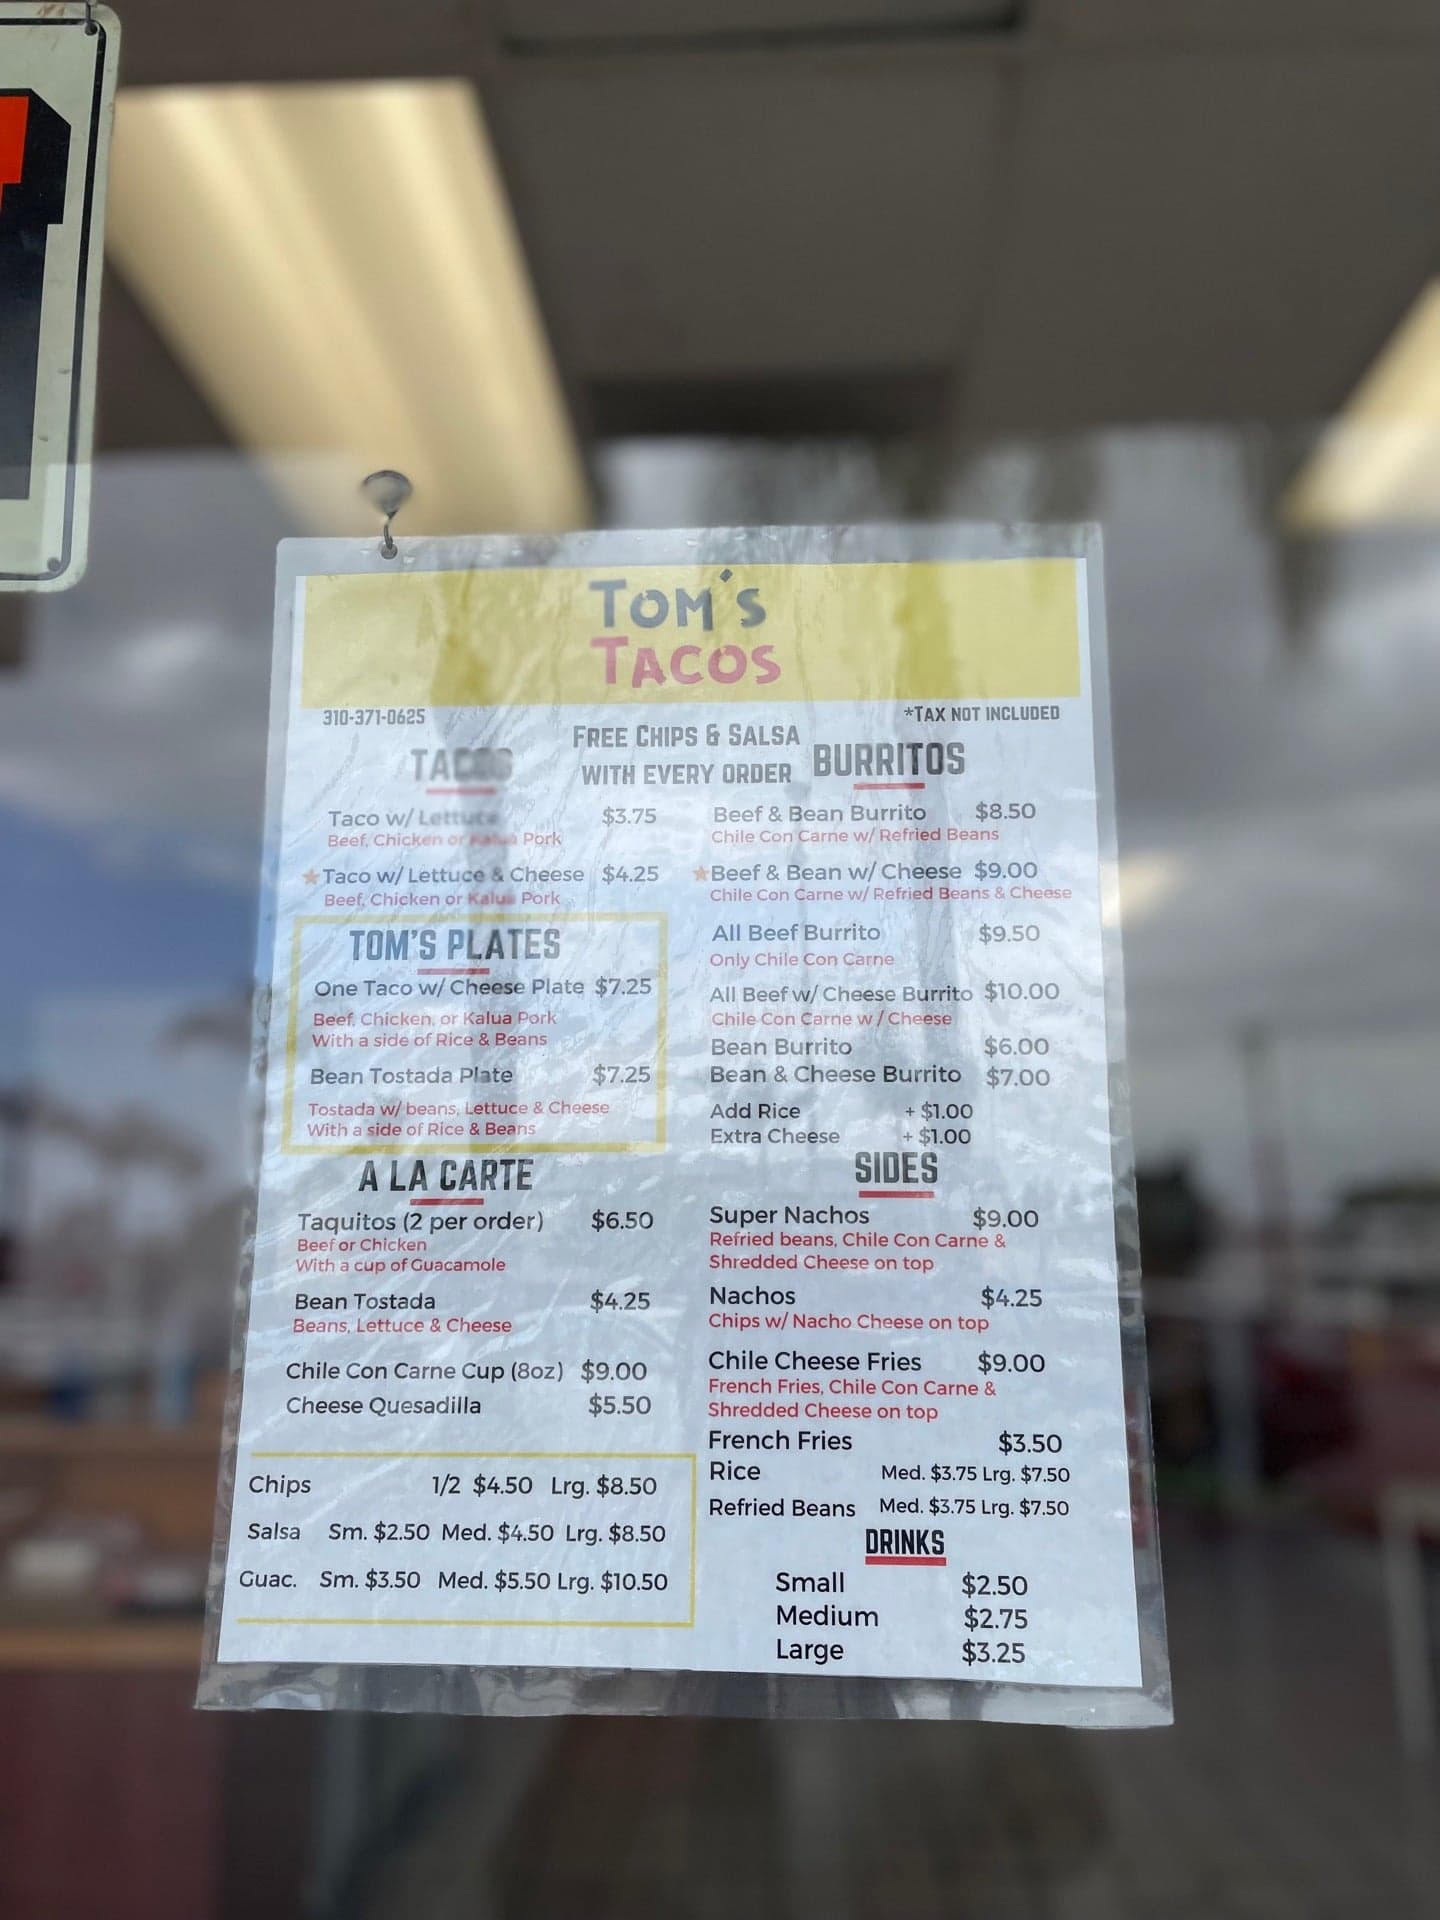 TOM'S
TACOS
310-371-0625
*TAX NOT INCLUDED
FREE CHIPS & SALSA
WITH EVERY ORDER
TACOS
Taco w/ Lettuce $3.75
Beef, Chicken or Kalua Pork
Taco w/ Lettuce & Cheese $4.25
Beef, Chicken or Kalua Pork
TOM'S PLATES
One Taco w/ Cheese Plate $7.25
Beef, Chicken, or Kalua Pork
With a side of Rice & Beans
Bean Tostada Plate $7.25
Tostada w/ beans, Lettuce & Cheese
With a side of Rice & Beans
A LA CARTE
Taquitos (2 per order) $6.50
Beef or Chicken
With a cup of Guacamole
Bean Tostada $4.25
Beans, Lettuce & Cheese
Chile Con Carne Cup (8oz) $9.00
Cheese Quesadilla $5.50
Chips 1/2 $4.50 Lrg. $8.50
Salsa Sm. $2.50 Med. $4.50 Lrg. $8.50
Guac. Sm. $3.50 Med. $5.50 Lrg. $10.50
BURRITOS
Beef & Bean Burrito $8.50
Chile Con Carne w/ Refried Beans
Beef & Bean w/ Cheese $9.00
Chile Con Carne w/ Refried Beans & Cheese
All Beef Burrito $9.50
Only Chile Con Carne
All Beef w/ Cheese Burrito $10.00
Chile Con Carne w / Cheese
Bean Burrito $6.00
Bean & Cheese Burrito $7.00
Add Rice + $1.00
Extra Cheese + $1.00
SIDES
Super Nachos $9.00
Refried beans, Chile Con Carne &
Shredded Cheese on top
Nachos $4.25
Chips w/ Nacho Cheese on top
Chile Cheese Fries $9.00
French Fries, Chile Con Carne &
Shredded Cheese on top
French Fries $3.50
Rice Med. $3.75 Lrg. $7.50
Refried Beans Med. $3.75 Lrg. $7.50
DRINKS
Small $2.50
Medium $2.75
Large $3.25